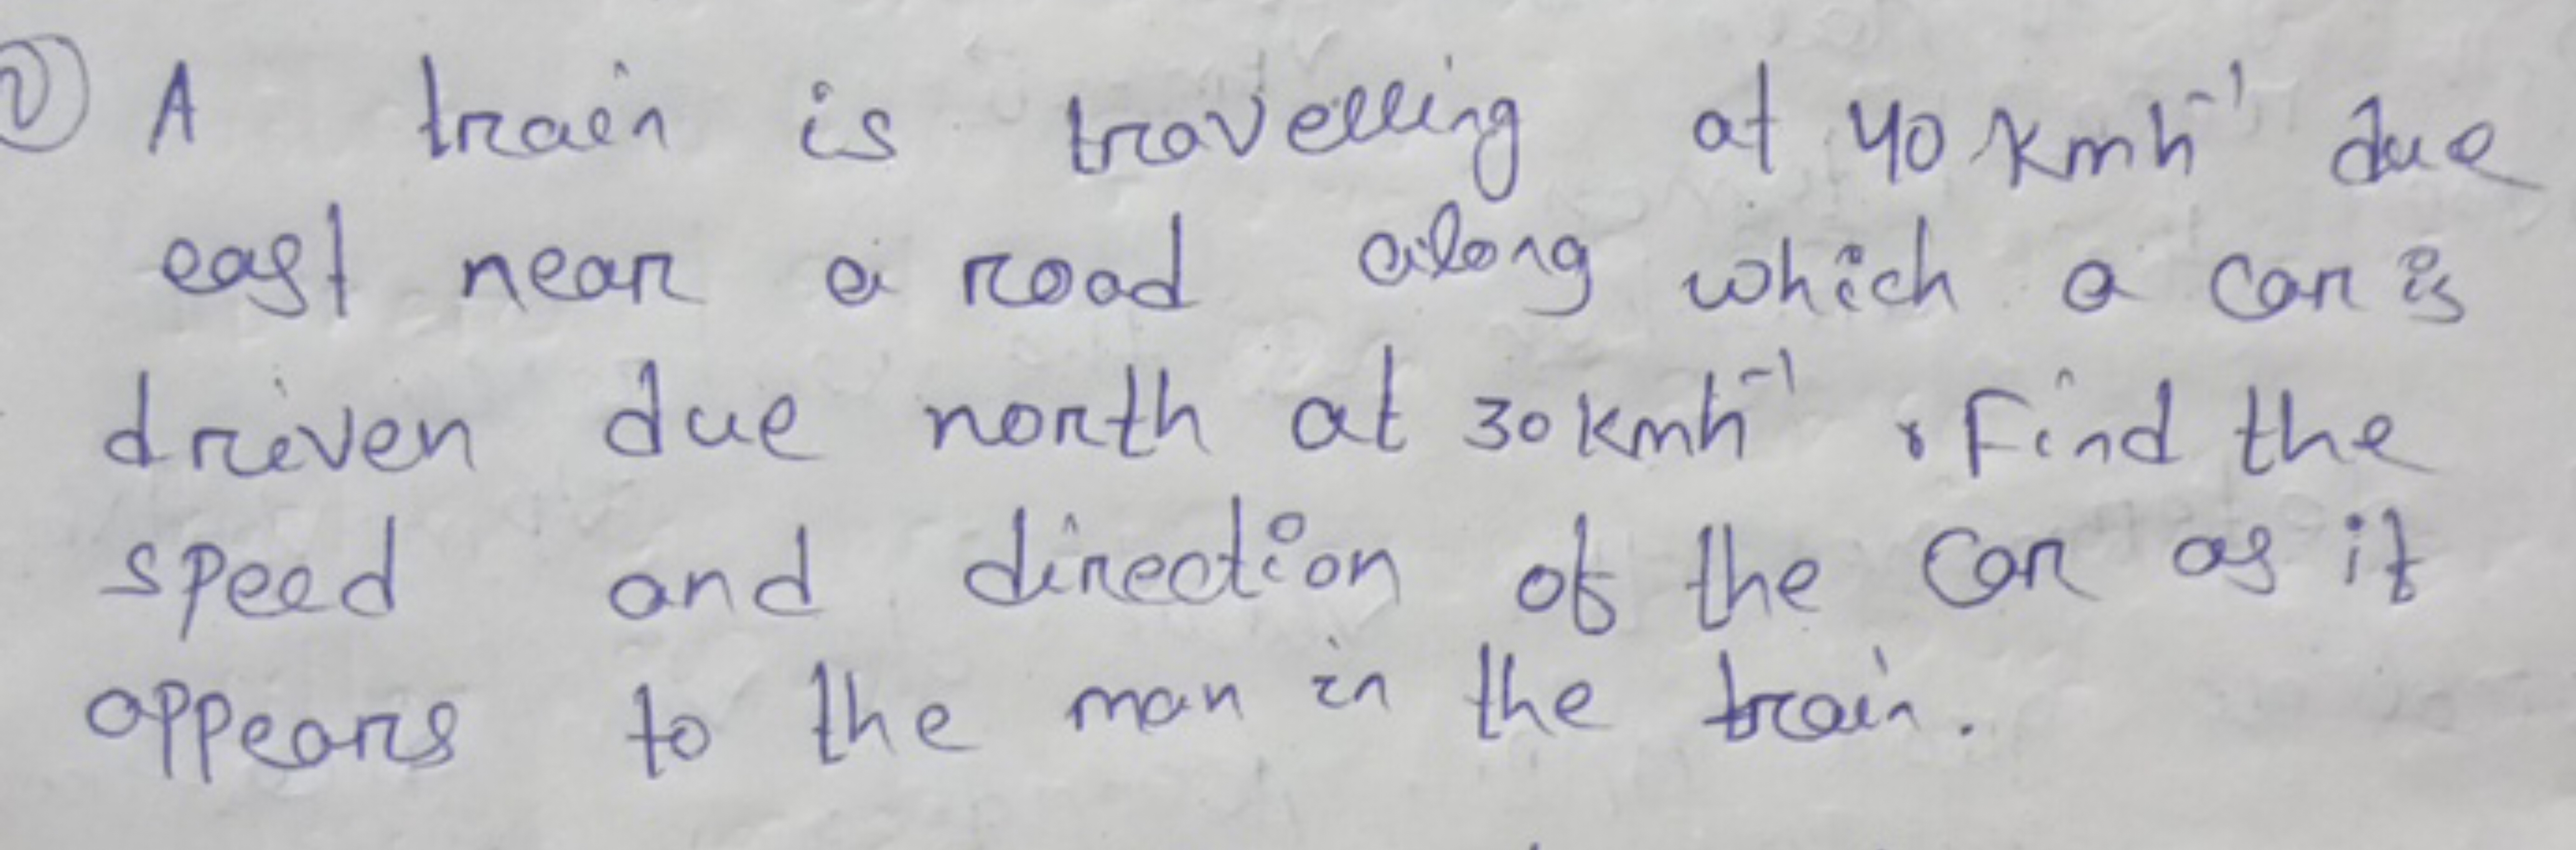 A train is travelling at 40 kmh⁻¹ due
east near a road along which a car is
driven due north at 30 kmh⁻¹. Find the
speed and direction of the car as it
appears to the man in the train.